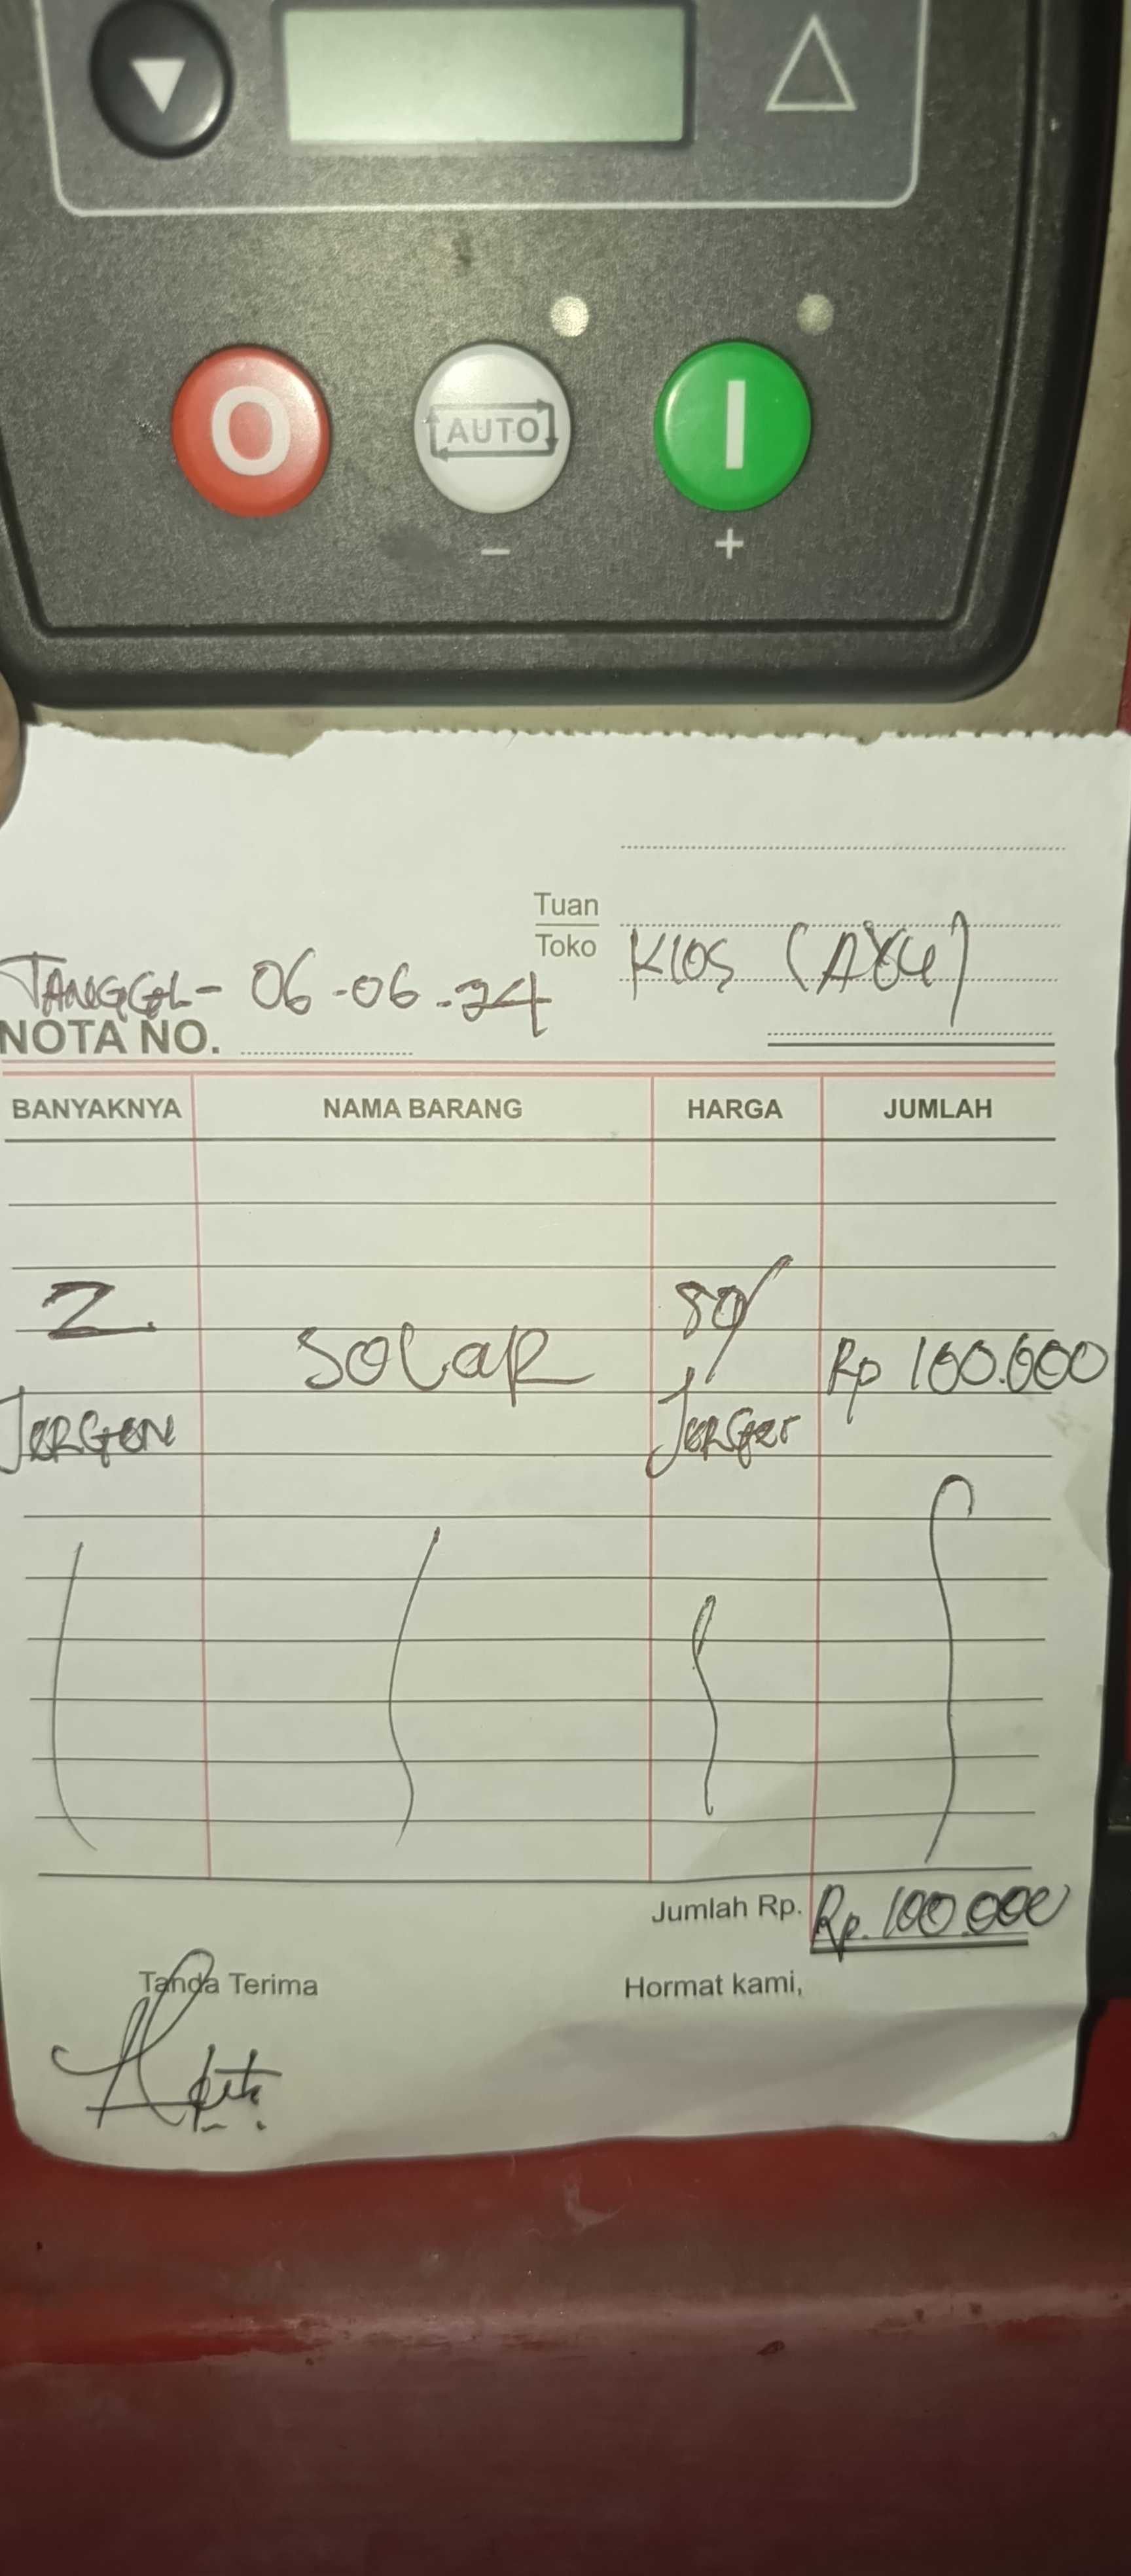 O AUTO I
- +
Tuan
Toko KIOS
TANGGAL- 06-06-24
NOTA NO.
BANYAKNYA NAMA BARANG HARGA JUMLAH
2 50/
SOLAR Rp 100.000
JERGEN
Jumlah Rp. Rp. 100.000
Tanda Terima Hormat kami,